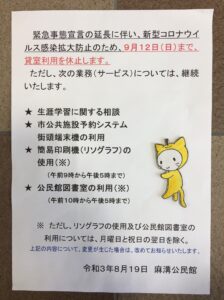 緊急事態宣言の延長に伴い、新型コロナウイ
ルス感染拡大防止のため、9月12日(日)まで、
貸室利用を休止します。
ただし、次の業務(サービス)については、継続
いたします。
★ 生涯学習に関する相談
★ 市公共施設予約システム
街頭端末機の利用
★ 簡易印刷機(リソグラフ)の
使用(※)
(午前9時から午後5時まで)
★ 公民館図書室の利用(※)
(午前10時から午後5時まで)
※ ただし、リソグラフの使用及び公民館図書室の
利用については、月曜日と祝日の翌日を除く。
上記の内容について、変更が生じた場合は、改めてお知らせいたします。
令和3年8月19日 麻溝公民館